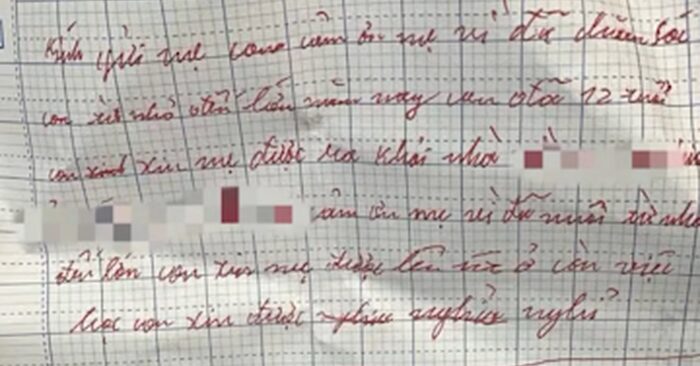 Kính gửi mẹ con cảm ơn mẹ vì đã chăm sóc
con từ nhỏ đến lớn năm nay con đã 12 tuổi
con xin mẹ được ra khỏi nhà
ảm ơn mẹ vì đã nuôi từ nhỏ
đến lớn con xin mẹ được lên ở còn việc
học con xin được nghỉ